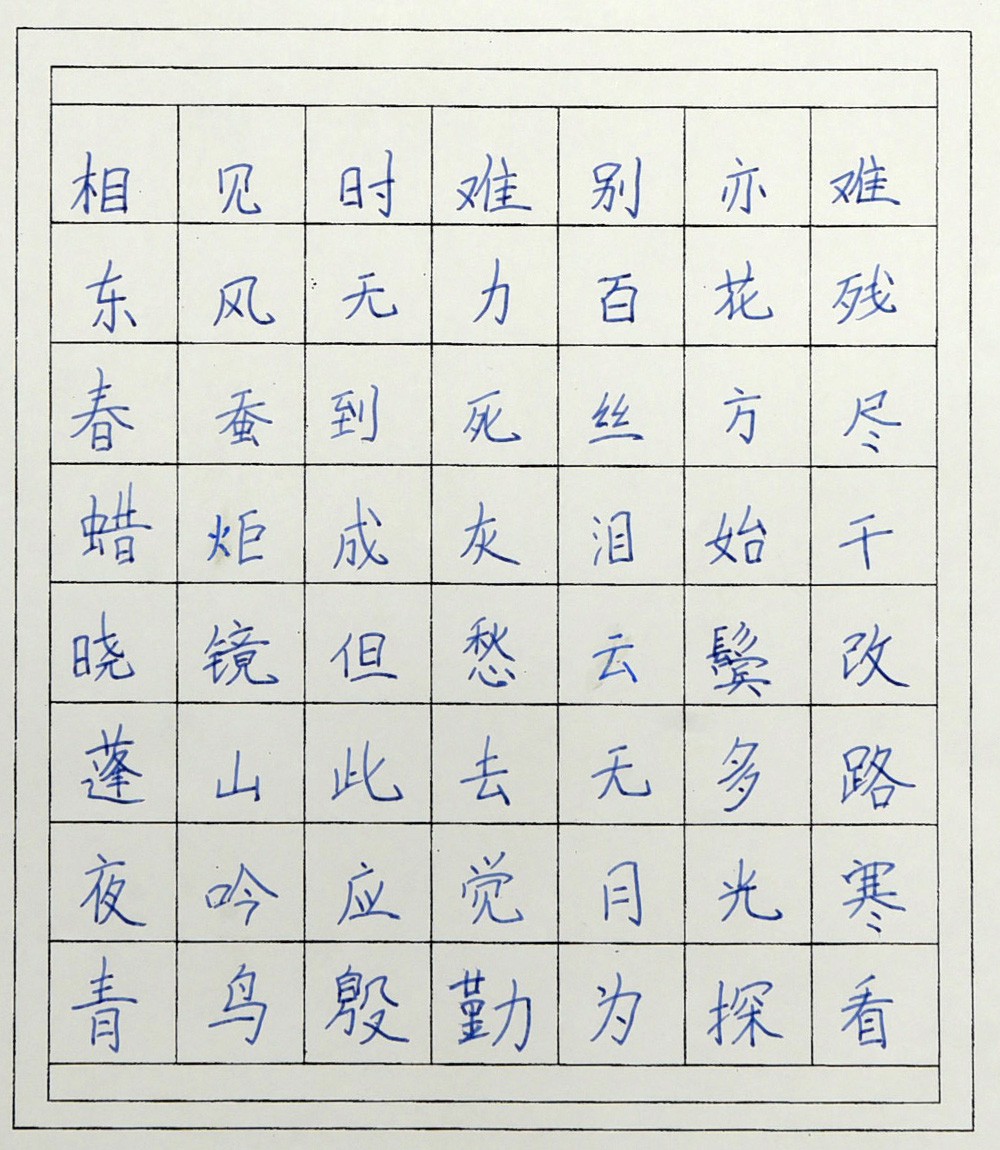 相见时难别亦难
东风无力百花残
春蚕到死丝方尽
蜡炬成灰泪始干
晓镜但愁云鬓改
蓬山此去无多路
夜吟应觉月光寒
青鸟殷勤为探看